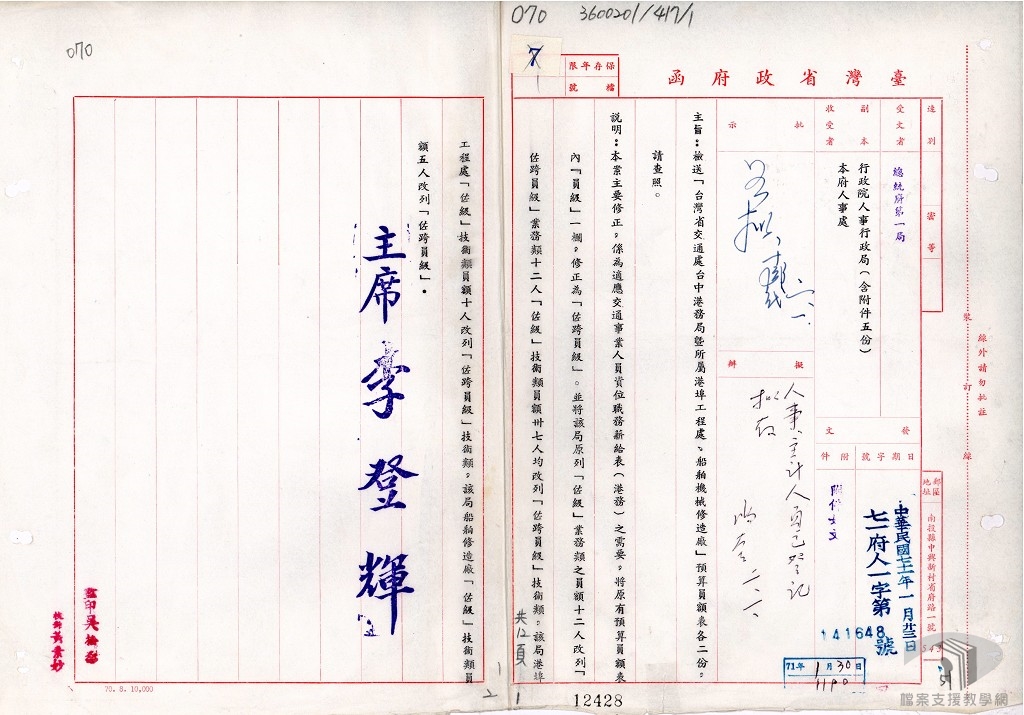 070
3600201/417/1
070
7
保存年限
檔號
臺灣省政府函
速別
密等
受文者
總統府第一局
副本
收受者
行政院人事行政局(含附件五份)
本府人事處
批示
擬辦
人事、主計人員已登記
擬存
發文
日期字號附件
中華民國七十一年1月廿三日
七一府人一字第141648號
附件如文
郵區
地址
南投縣中興新村省府路一號
線外請勿批註
裝訂線
71年1月30日
主旨：檢送「台灣省交通處台中港務局暨所屬港埠工程處、船舶機械修造廠」預算員額表各二份，
請查照。
說明：本案主要修正，係為適應交通事業人員資位職務薪給表(港務)之需要，將原有預算員額表
內「員級」一欄，修正為「佐跨員級」。並將該局原列「佐級」業務類之員額十二人改列「
佐跨員級」業務類十二人「佐級」技術類員額卅七人均改列「佐跨員級」技術類，該局港埠
共12頁
12428
工程處「佐級」技術類員額十人改列「佐跨員級」技術類，該局船舶修造廠「佐級」技術員
額五人改列「佐跨員級」。
主席李登輝
監印吳
校對黃
70. 8. 10,000
檔案支援教學網